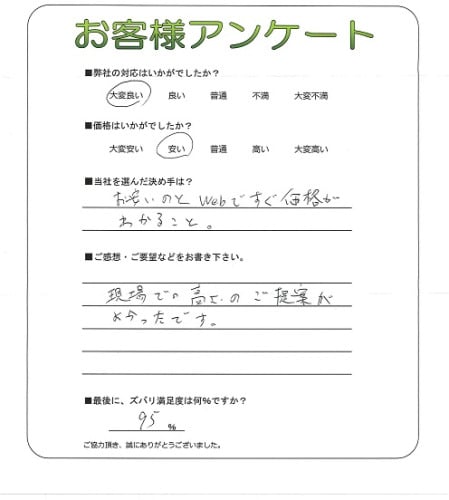 お客様アンケート
■弊社の対応はいかがでしたか?
大変良い 良い 普通 不満 大変不満
■価格はいかがでしたか?
大変安い 安い 普通 高い 大変高い
■当社を選んだ決め手は?
お安いのと Webですぐ価格が
わかること。
■ご感想・ご要望などをお書き下さい。
現場での高さのご提案が
よかったです。
■最後に、ズバリ満足度は何%ですか?
95 %
ご協力頂き、誠にありがとうございました。